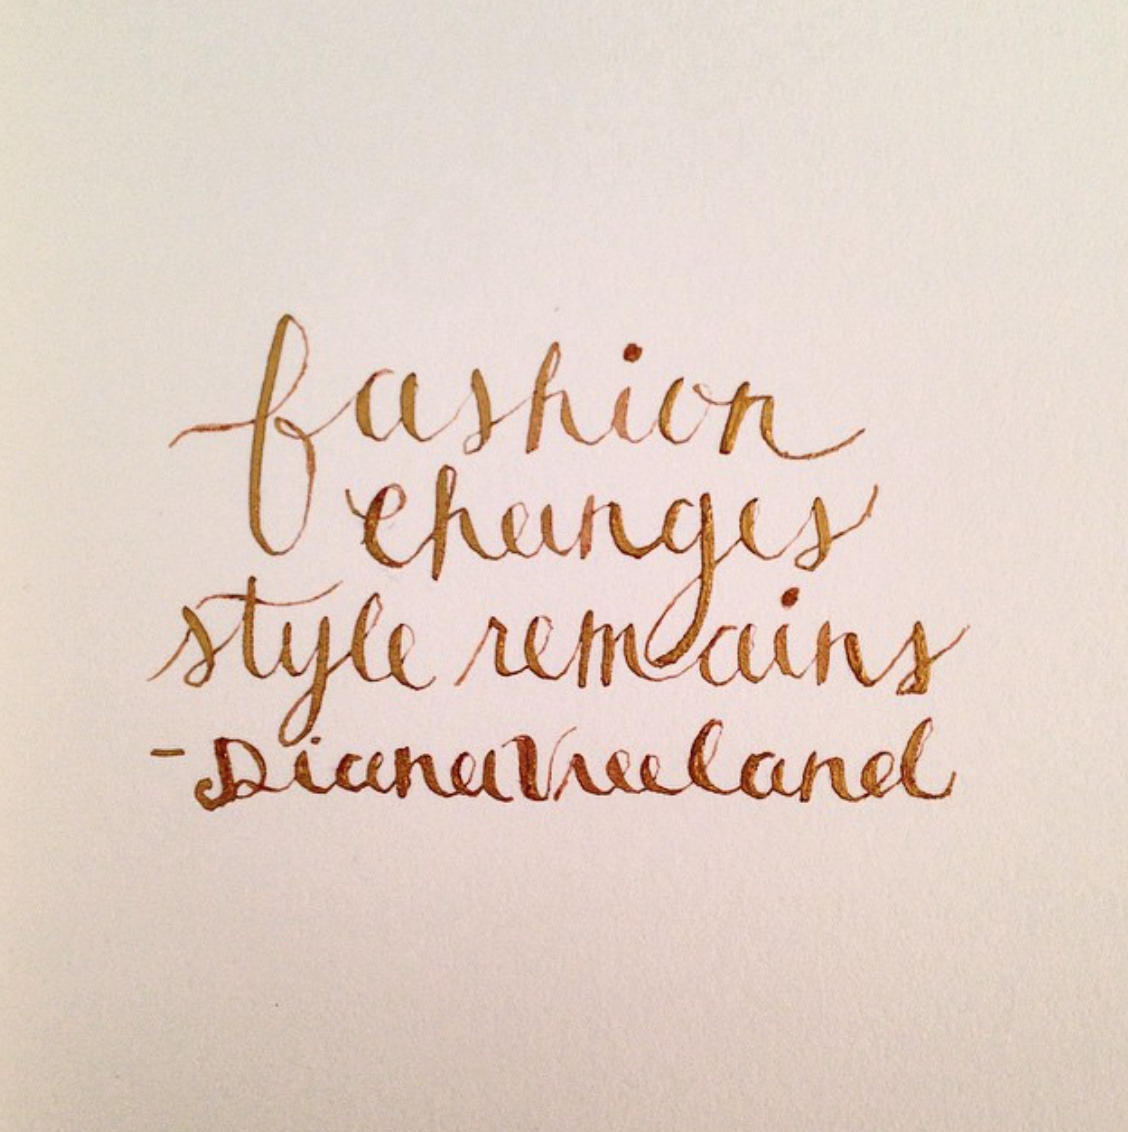 fashion
changes
style remains
- Diana Vreeland